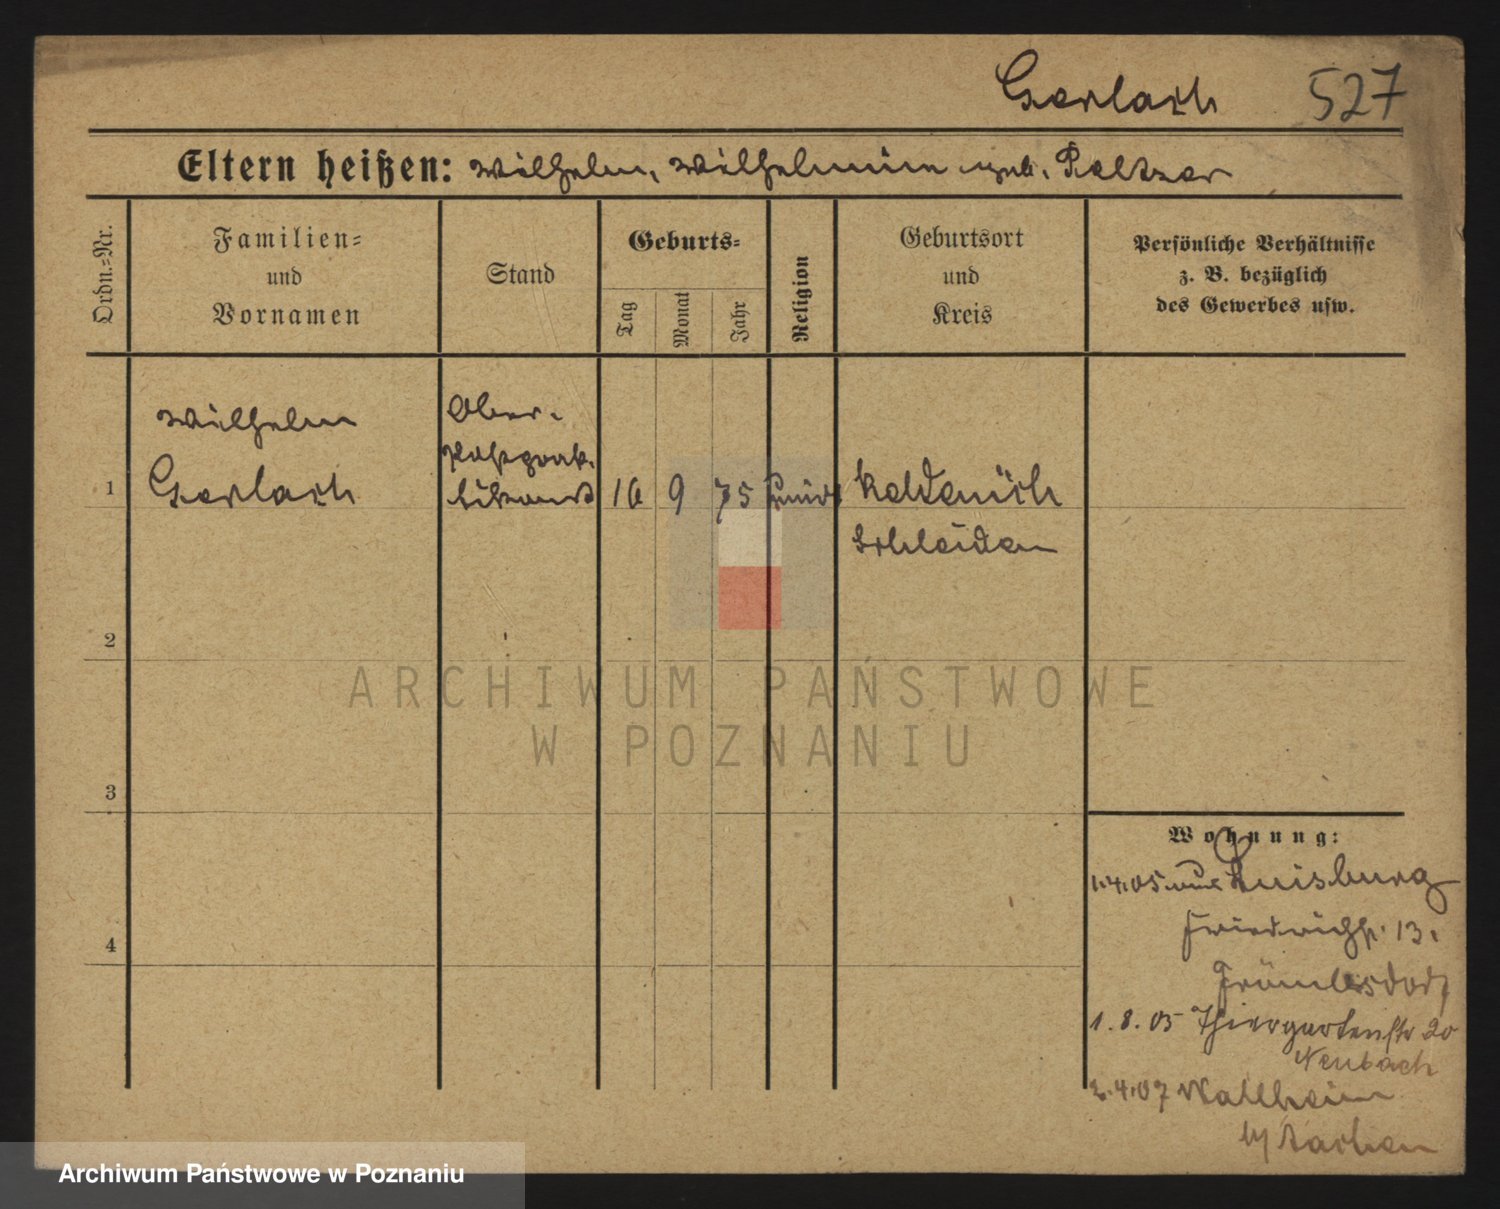 Gerlach 527
Eltern heißen: Wilhelm, Wilhelmine geb. Peltzer
Ordn.-Nr.
Familien-
und
Vornamen
Stand
Geburts-
Tag
Monat
Jahr
Religion
Geburtsort
und
Kreis
Persönliche Verhältnisse
z. B. bezüglich
des Gewerbes usw.
Wilhelm
Ober-
Postprak-
1 Gerlach tikant 10 9 75 Kaldenich
Schleiden
2
ARCHIWUM PAŃSTWOWE
W POZNANIU
3
Wohnung:
1.4.05 Duisburg
Friedrichst. 13.
1.8.05 Thiergartenstr 20
Neubach
2.4.07 Wallheim
b/ Aachen
4
Archiwum Państwowe w Poznaniu